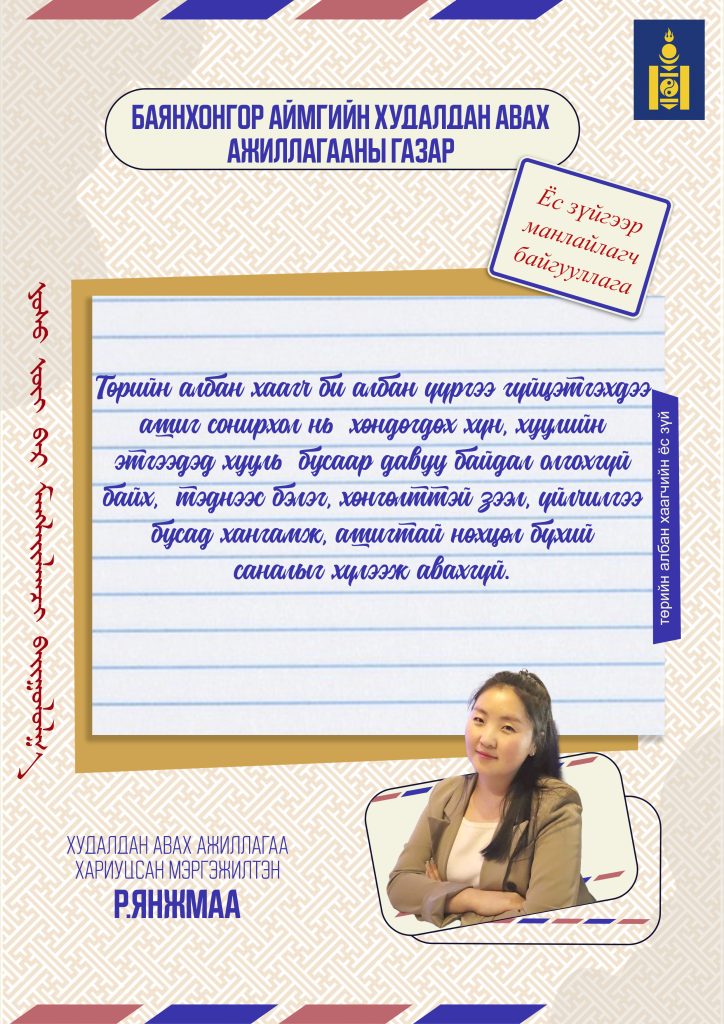 БАЯНХОНГОР АЙМГИЙН ХУДАЛДАН АВАХ
АЖИЛЛАГААНЫ ГАЗАР
Ёс зүйгээр
манлайлагч
байгууллага
Төрийн албан хаагч би албан үүргээ гүйцэтгэхдээ
ашиг сонирхол нь хөндөгдөх хүн, хуулийн
этгээдэд хууль бусаар давуу байдал олгохгүй
байх, тэднээс бэлэг, хөнгөлттэй зээл, үйлчилгээ
бусад хангамж, ашигтай нөхцөл бүхий
саналыг хүлээж авахгүй.
төрийн албан хаагчийн ёс зүй
ХУДАЛДАН АВАХ АЖИЛЛАГАА
ХАРИУЦСАН МЭРГЭЖИЛТЭН
Р.ЯНЖМАА